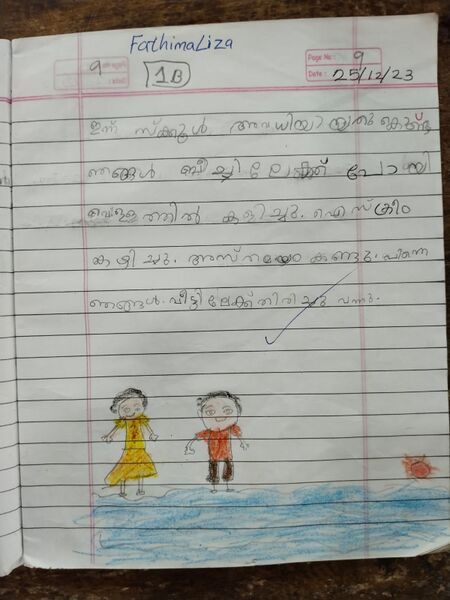 FathimaLiza
9
1B
Page No: 9
Date: 25/12/23
ഇന്ന് സ്ക്കൂൾ അവധിയായതുകൊണ്ട്
ഞങ്ങൾ ബീച്ചിലേക്ക് പോയി
വെള്ളത്തിൽ കളിച്ചു. ഐസ്ക്രീം
കഴിച്ചു. അസ്തമയം കണ്ടു. പിന്നെ
ഞങ്ങൾ വീട്ടിലേക്ക് തിരിച്ചു വന്നു.